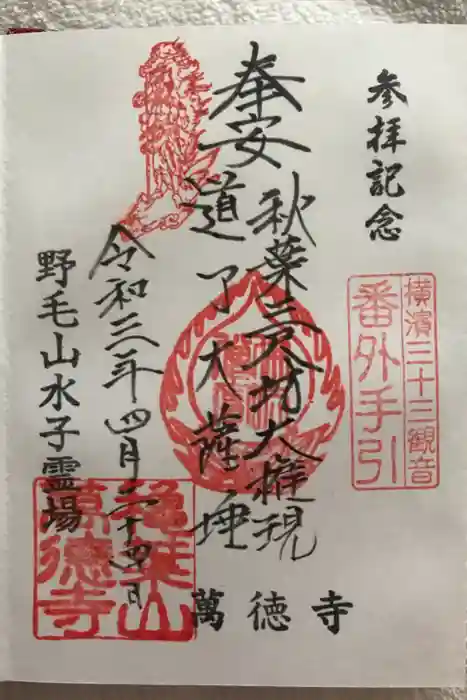 参拝記念
横濱三十三観音
番外手引
奉安
秋葉三尺坊大権現
道了大薩埵
令和三年四月二十四日
野毛山水子霊場
萬徳寺
萬德寺